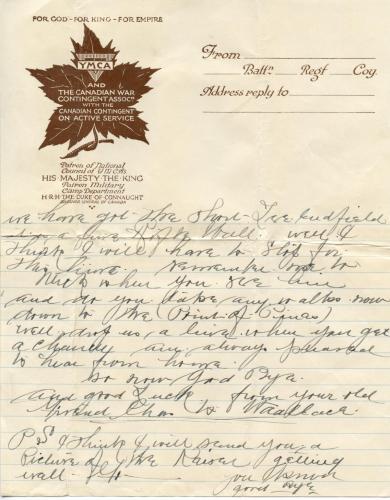 FOR GOD - FOR KING - FOR EMPIRE
YMCA
AND
THE CANADIAN WAR
CONTINGENT ASSOCN
WITH THE
CANADIAN CONTINGENT
ON ACTIVE SERVICE
Patron of National
Council of Y.M.C.A's
HIS MAJESTY THE KING
Patron Military
Camp Department
H.R.H. THE DUKE OF CONNAUGHT
GOVERNOR GENERAL OF CANADA
From
Battn Regt Coy
Address reply to
we have got the Short Lee Endfield
Rifle well I
think I will have to Stop for
this time remember me to
when you see him
and do you take any walks now
down to the (Point of Pines)
well drop us a line when you get
a chance am always pleased
to hear from home
so now Good Bye
and good Luck from your old
friend Chas Wallace
P.S. I think I will send you a
Picture of the Kaiser getting
well
you know
good bye